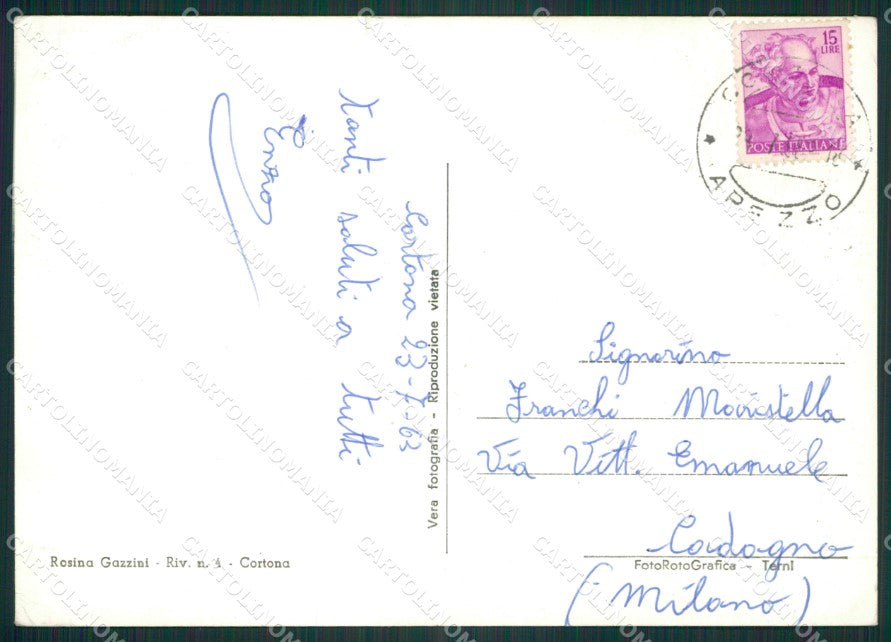 Cortona 23-7-63
Tanti saluti a tutti
Enzo
Vera fotografia - Riproduzione vietata
Rosina Gazzini - Riv. n. 4 - Cortona
15
LIRE
POSTE ITALIANE
AREZZO
Signorina
Franchi Maristella
Via Vitt. Emanuele
Codogno
(Milano)
FotoRotoGrafica - Terni
CARTOLINOMANIA